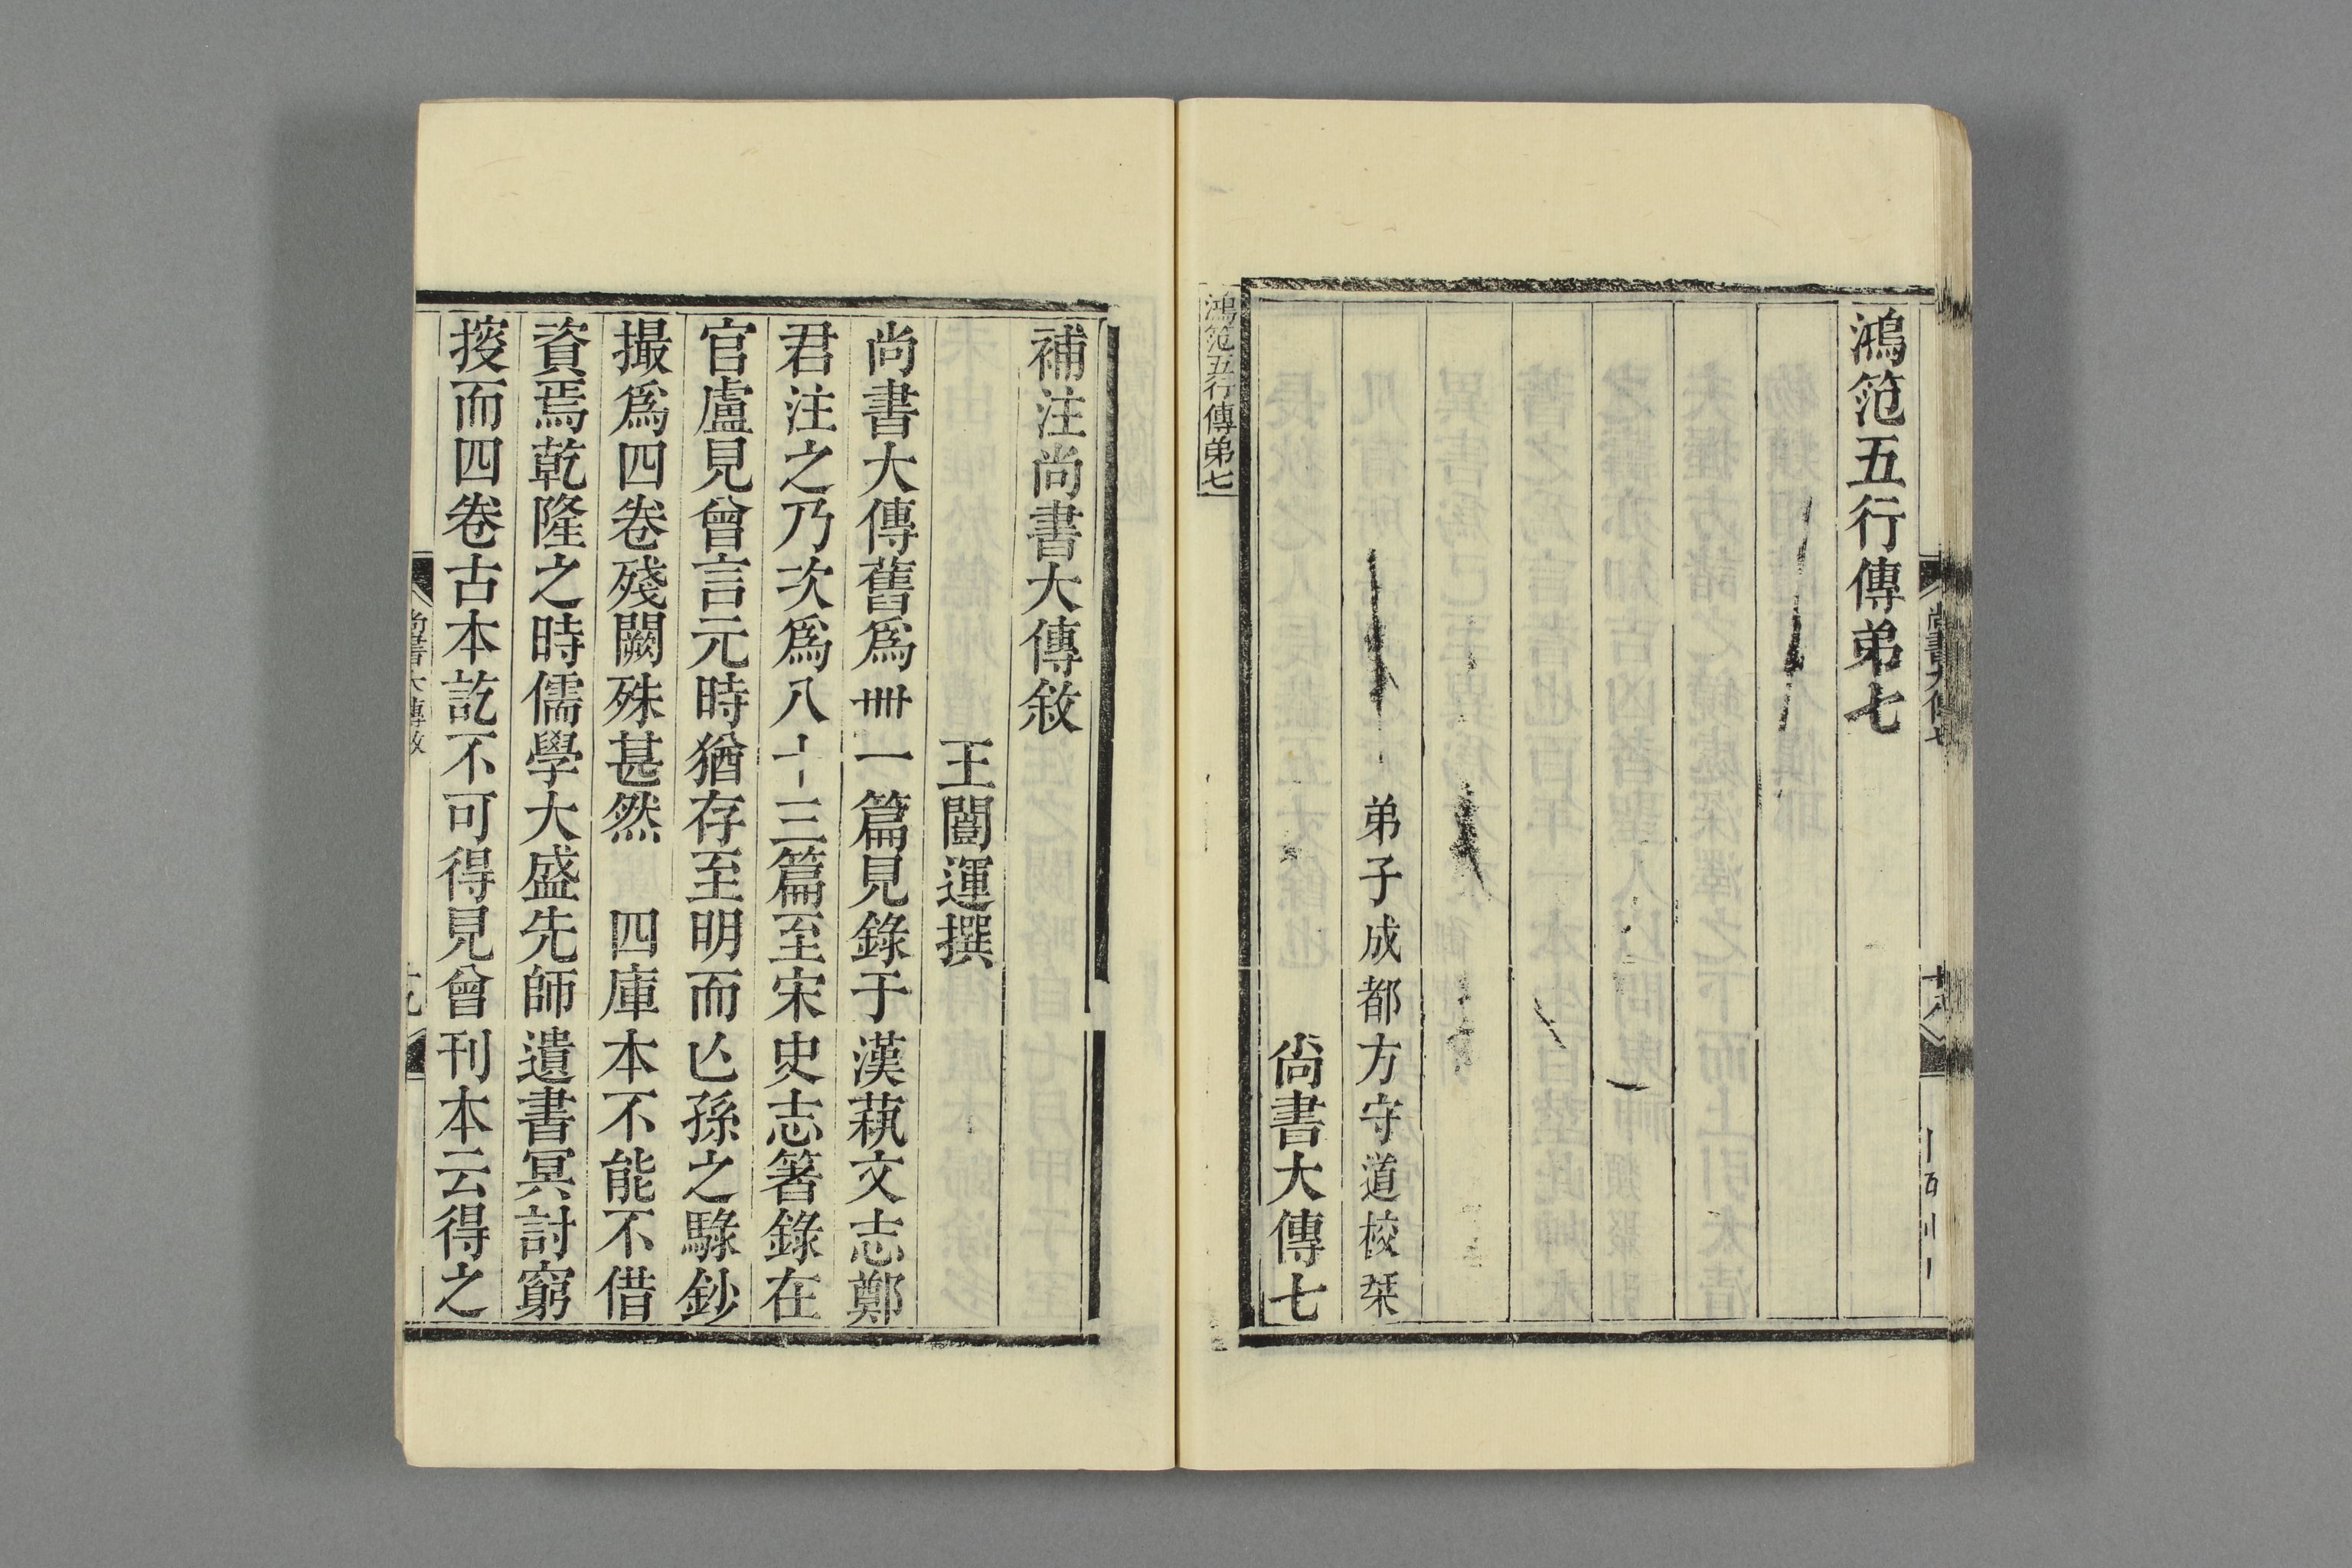 鴻笵五行傳弟七
弟子成都方守道校栞
尙書大傳七
鴻笵五行傳弟七
補注尚書大傳敘
王闓運撰
尚書大傳舊爲卌一篇見錄于漢蓺文志鄭
君注之乃次爲八十三篇至宋史志箸錄在
官盧見曾言元時猶存至明而亾孫之騄鈔
撮爲四卷殘闕殊甚然　四庫本不能不借
資焉乾隆之時儒學大盛先師遺書冥討窮
㨛而四卷古本訖不可得見曾刊本云得之